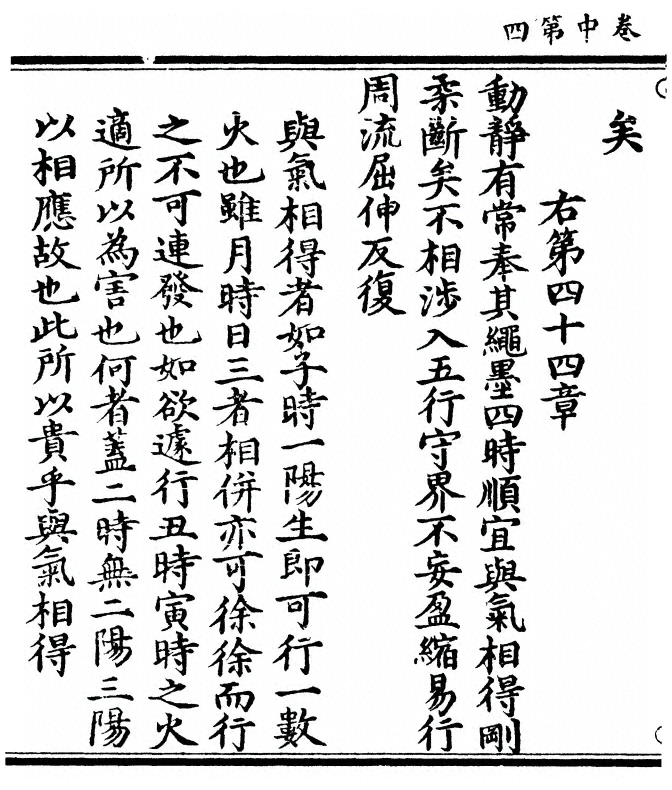 卷中第四
矣
右第四十四章
動靜有常奉其繩墨四時順宜與氣相得剛
柔斷矣不相涉入五行守界不妄盈縮易行
周流屈伸反復
與氣相得者如子時一陽生即可行一數
火也雖月時日三者相併亦可徐徐而行
之不可連發也如欲遽行丑時寅時之火
適所以為害也何者蓋二時無二陽三陽
以相應故也此所以貴乎與氣相得